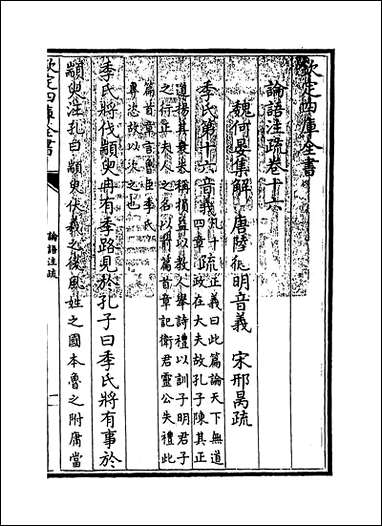 欽定四庫全書
論語注疏卷十六
魏何晏集解 唐陸徳明音義 宋邢昺疏
季氏第十六 音義 凡十四章 疏 正義曰此篇論天下無道政在大夫故孔子陳其正
道揚其衰失稱損益以教人舉詩禮以訓子明君子
之行正夫人之名以前篇首章記衛君靈公失禮此
篇首章言魯臣季氏
專恣故以次之也
季氏將伐顓臾冉有季路見於孔子曰季氏將有事於
顓臾注孔曰顓臾伏羲之後風姓之國本魯之附庸當
欽定四庫全書
論語注疏
一